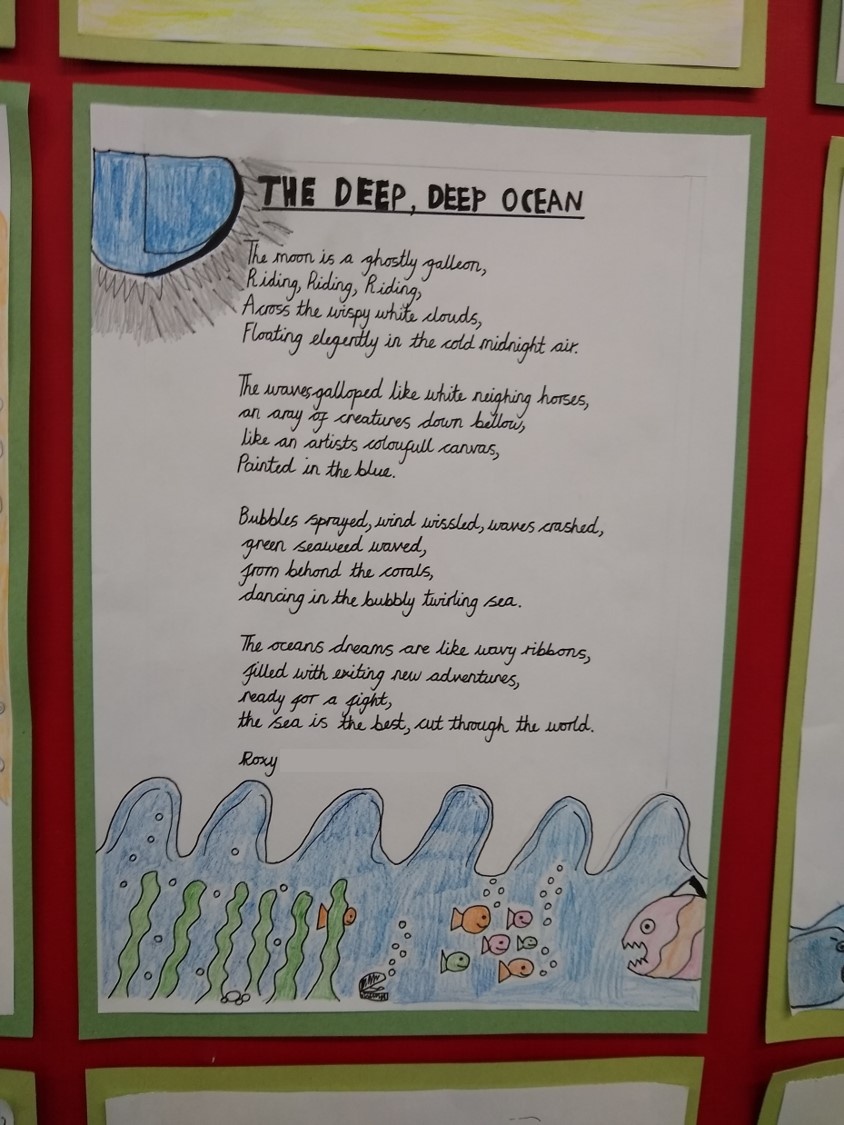 THE DEEP, DEEP OCEAN
The moon is a ghostly galleon,
Riding, Riding, Riding,
Across the wispy white clouds,
Floating elegently in the cold midnight air.
The waves galloped like white neighing horses,
an aray of creatures down bellow,
like an artists coloufull canvas,
Painted in the blue.
Bubbles sprayed, wind wissled, waves crashed,
green seaweed waved,
from behond the corals,
dancing in the bubbly twirling sea.
The oceans dreams are like wavy ribbons,
filled with exiting new adventures,
ready for a fight,
the sea is the best, cut through the world.
Roxy